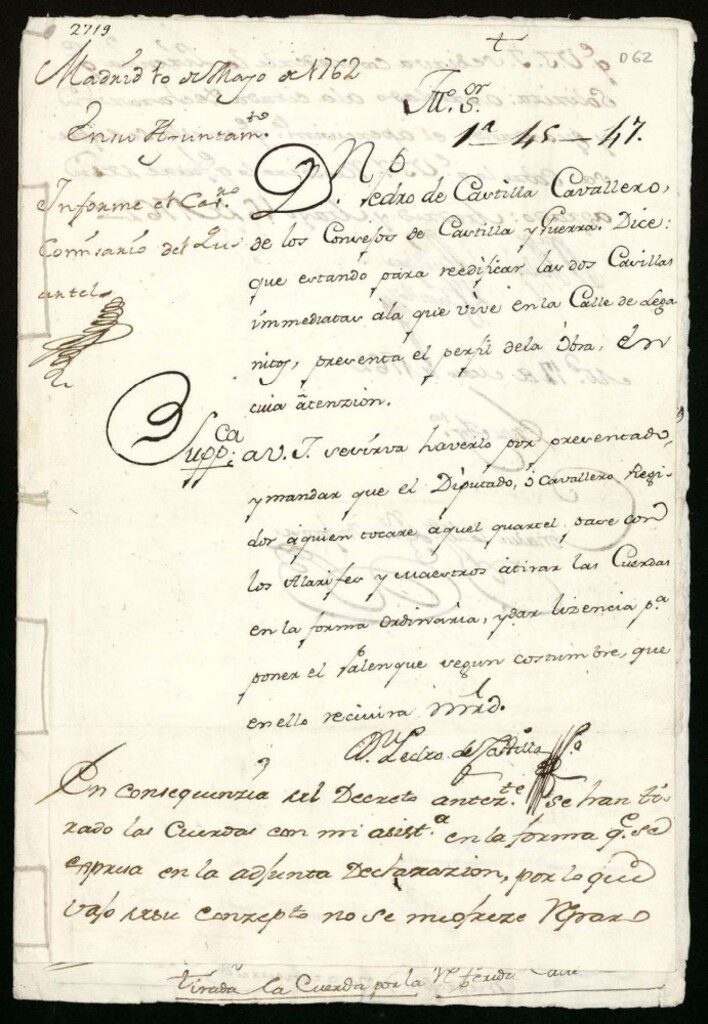 2719
D62
Madrid 10 de Mayo de 1762
En su Ayuntamto.
Informe el Cavro.
Comisario del Qu
artel
Illmo. Sor.
1a 45 — 47.
D. Pedro de Castilla Cavallero,
de los Consejos de Castilla y Guerra. Dice:
que estando para reedificar las dos Casillas
immediatas ála que vive en la Calle de Lega
nitos, presenta el perfil dela Obra, En
cuia átenzion.
Suppca. a V. I. se sirva haverlo por presentado,
y mandar que el Diputado, ó Cavallero Regi-
dor áquien tocare aquel quartel, pase con
los Alarifes y Maestros átirar las Cuerdas
en la forma Ordinaria, y dar lizencia pa.
poner el Palenque segun costumbre, que
en ello recivira mrd.
Dn. Pedro de Castilla
En consequenzia del Decreto antezte. se han ti-
rado las Cuerdas con mi asista. en la forma qe. se
expresa en la adjunta Declarazion, por lo que
vajo desu conzepto no se me ofreze reparo
tirada la Cuerda por la referida